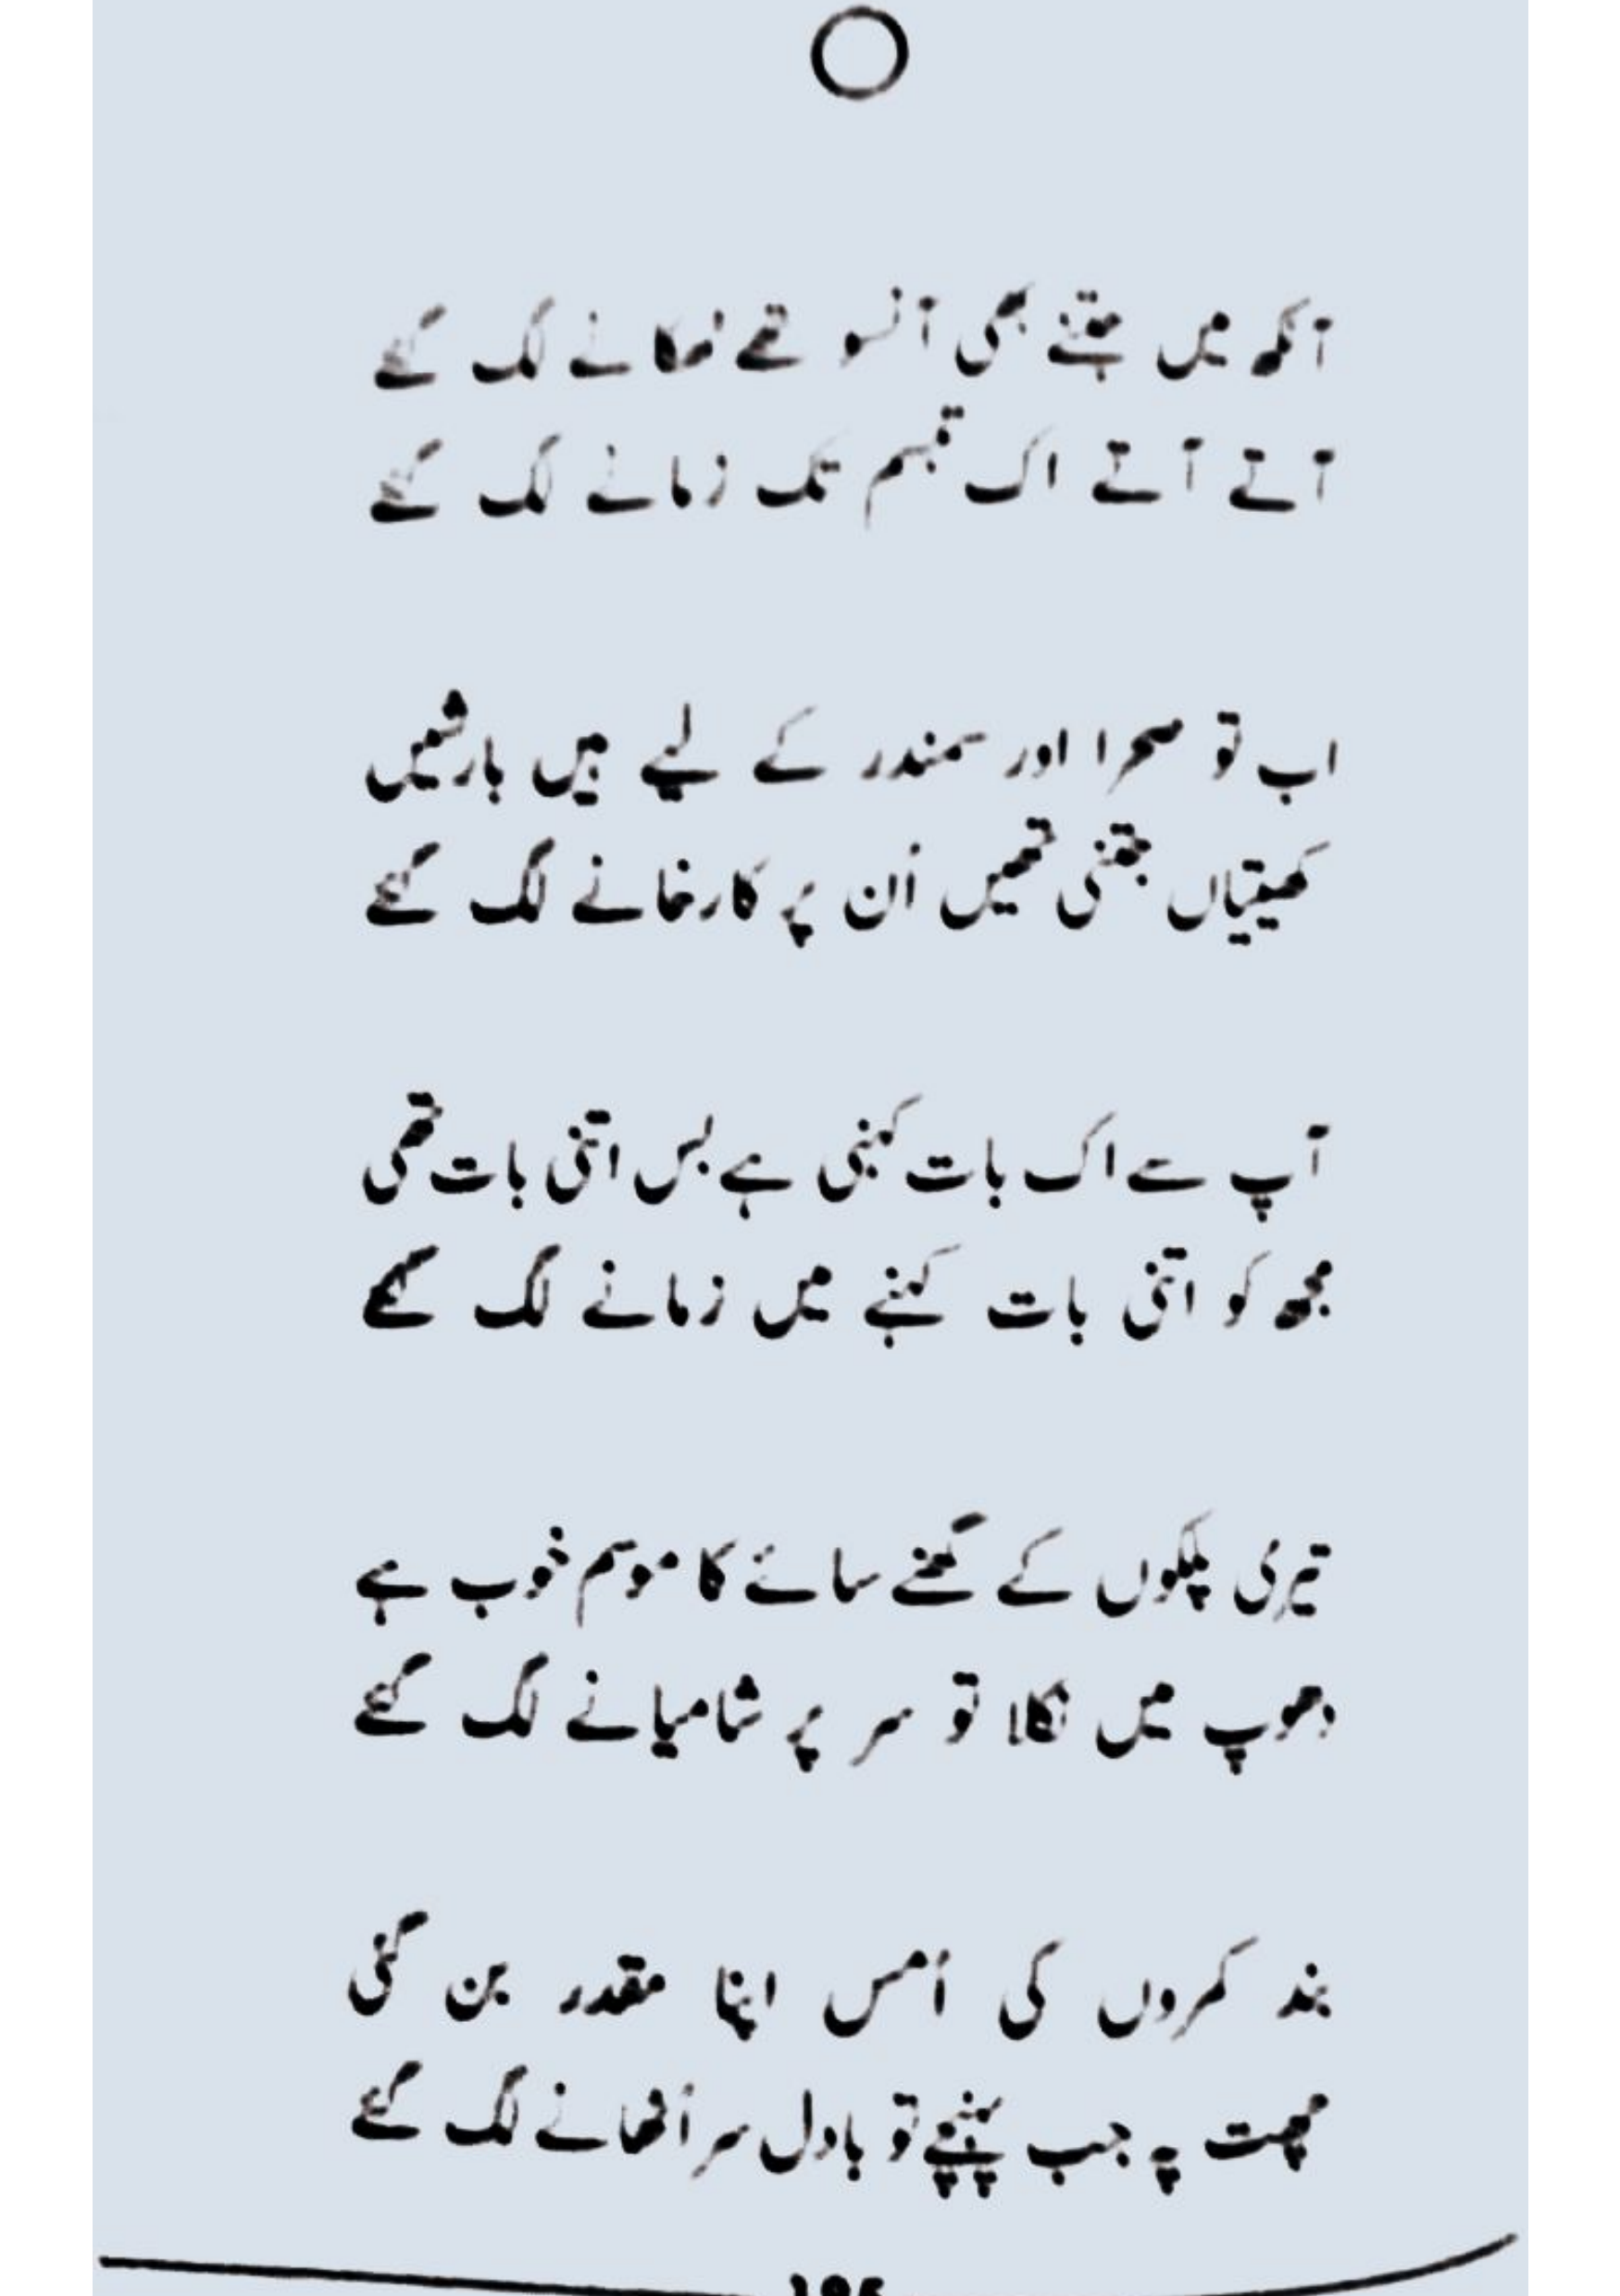 آنکھ میں جتنے بھی آنسو تھے ٹھکانے لگ گئے
آتے آتے اک تبسم تک زمانے لگ گئے
اب تو صحرا اور سمندر کے لیے ہیں بارشیں
کھیتیاں جتنی تھیں اُن پر کارخانے لگ گئے
آپ سے اک بات کہنی ہے بس اتنی بات تھی
مجھ کو اتنی بات کہنے میں زمانے لگ گئے
تیری پلکوں کے گھنے سائے کا موسم خوب ہے
دھوپ میں نکلا تو سر پر شامیانے لگ گئے
بند کمروں کی اُمس اپنا مقدر بن گئی
چھت پہ جب پہنچے تو بادل سر اُٹھانے لگ گئے